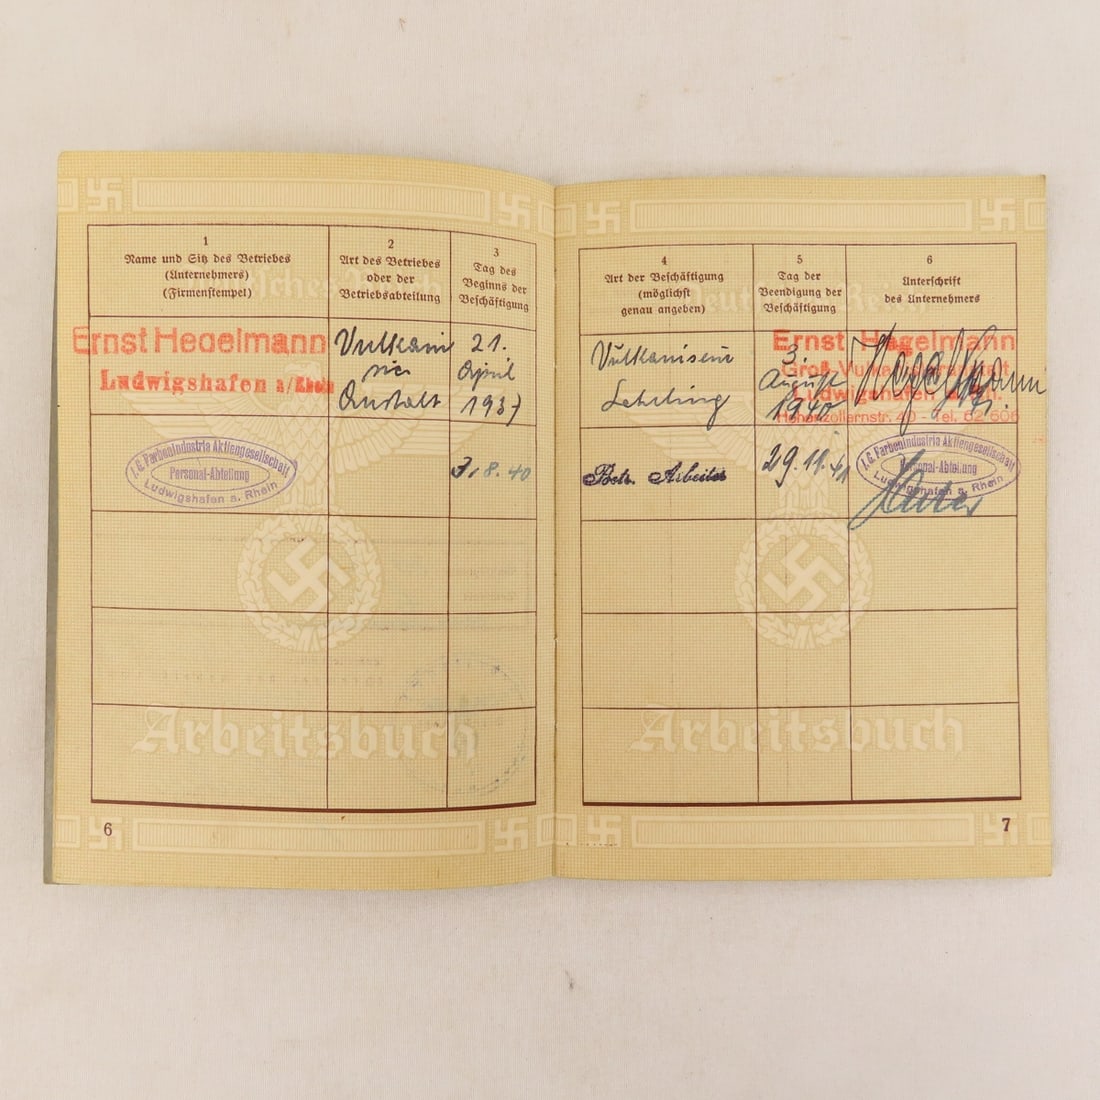 1
Name und Sitz des Betriebes
(Unternehmers)
(Firmenstempel)
2
Art des Betriebes
oder der
Betriebsabteilung
3
Tag des
Beginns der
Beschäftigung
Ernst Hegelmann
Ludwigshafen a/Rhein
Vulkani
sier
Anstalt
21.
April
1937
I.G. Farbenindustrie Aktiengesellschaft
Personal-Abteilung
Ludwigshafen a. Rhein
3.8.40
Arbeitsbuch
6
4
Art der Beschäftigung
(möglichst
genau angeben)
5
Tag der
Beendigung der
Beschäftigung
6
Unterschrift
des Unternehmers
Deutsches Reich
Vulkaniseur
Lehrling
3.
August
1940
Ernst Hegelmann
Groß-Vulkanisieranstalt
Ludwigshafen a. Rh.
Hohenzollernstr. 40 - Tel. 62 606
Hegelmann
Betr. Arbeiter
29.11.41
I.G. Farbenindustrie Aktiengesellschaft
Personal-Abteilung
Ludwigshafen a. Rhein
Arbeitsbuch
7